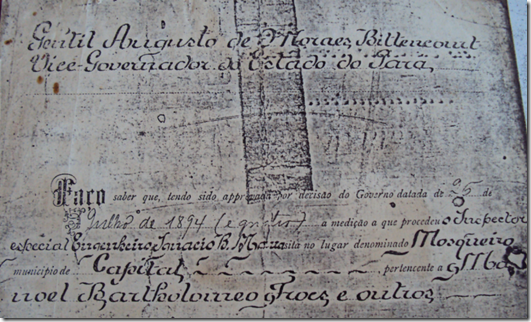 Gentil Augusto de Moraes Bittencourt
Vice-Governador do Estado do Pará,
Faço saber que, tendo sido approvada por decisão do Governo datada de 25 de
Julho de 1894 (e quatro) a medição a que procedeu o Inspector
especial Engenheiro Ignacio B. Moura sita no lugar denominado Mosqueiro
municipio de Capital, pertencente a Ma
noel Bartholomeo Froes e outros